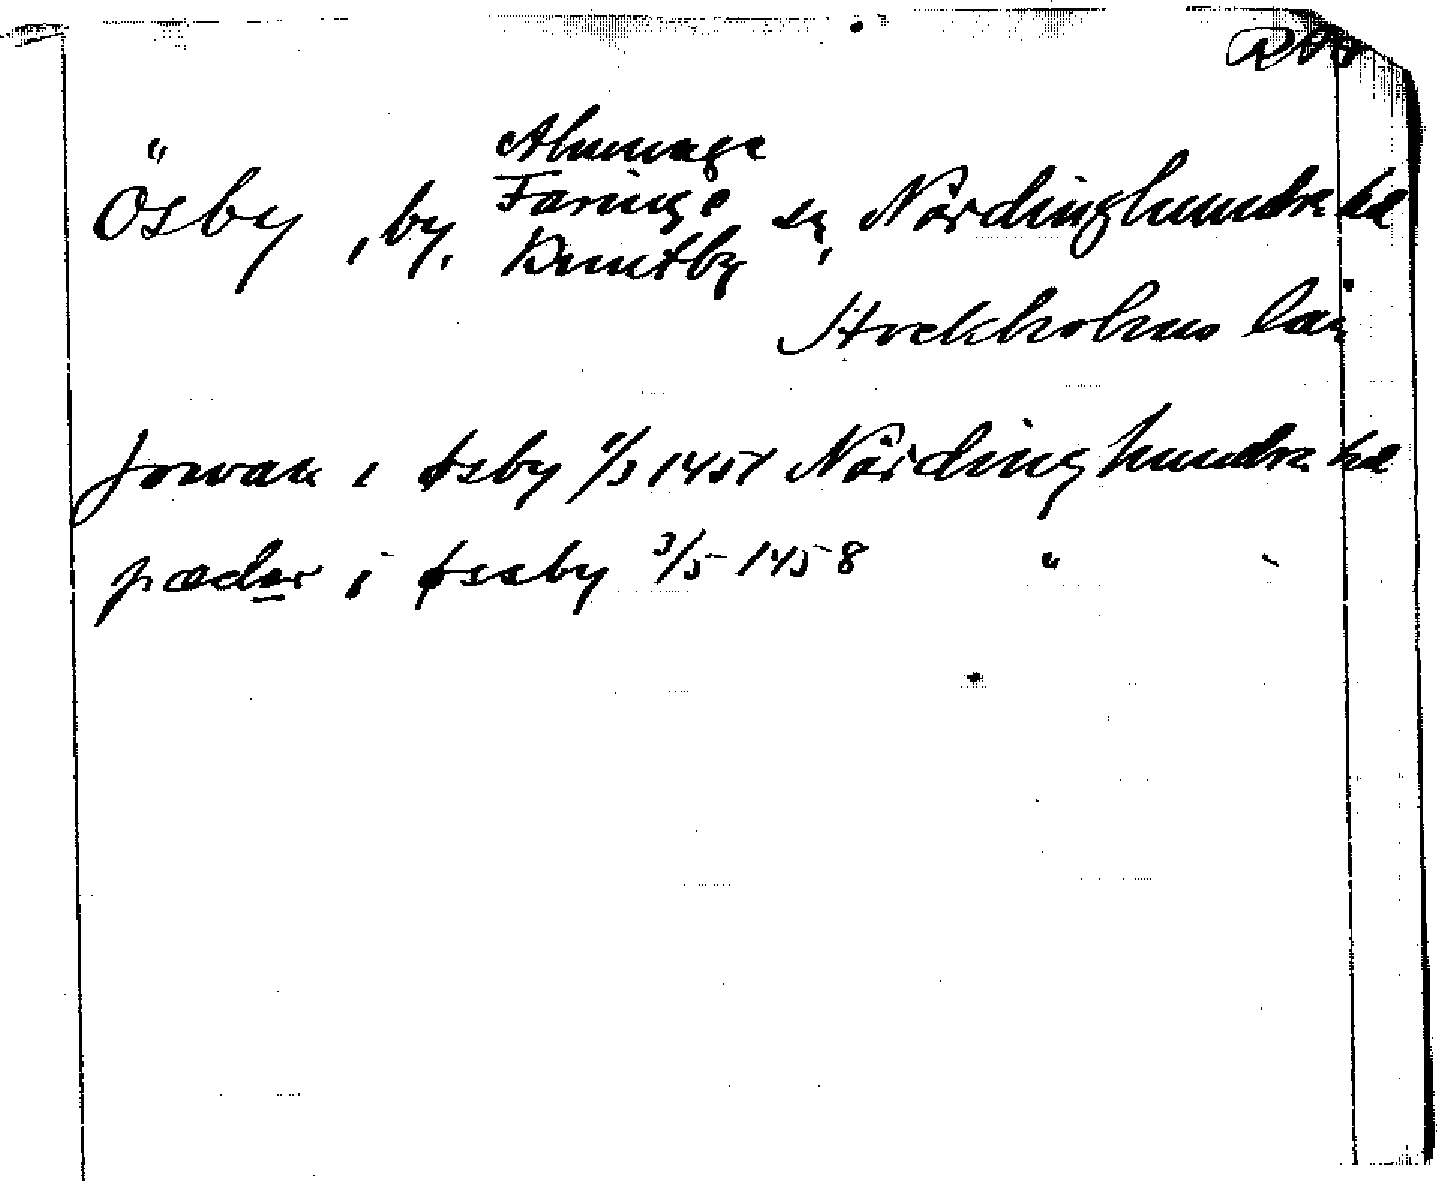 Almunge
Faringe
Ösby, by, Knutby sn, Närdinghundra hd
Stockholms län
Jowan i øsby 1/5 1451 Närdinghundra hd
pædar i øssby 3/5 1458 " "